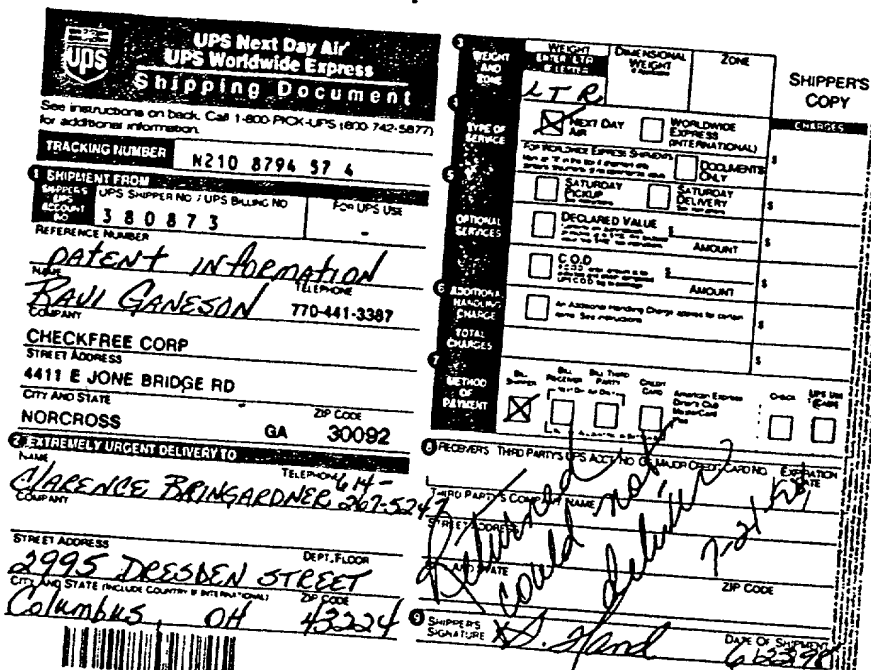 ups
UPS Next Day Air
UPS Worldwide Express
Shipping Document
See instructions on back. Call 1-800-PICK-UPS (800-742-5877)
for additional information.
TRACKING NUMBER N210 8794 57 4
1 SHIPMENT FROM
SHIPPER'S UPS ACCOUNT NO
UPS SHIPPER NO / UPS BILLING NO
FOR UPS USE
380873
REFERENCE NUMBER
PATENT INFORMATION
NAME TELEPHONE
RAVI GANESON 770-441-3387
COMPANY
CHECKFREE CORP
STREET ADDRESS
4411 E JONE BRIDGE RD
CITY AND STATE ZIP CODE
NORCROSS GA 30092
2 EXTREMELY URGENT DELIVERY TO
NAME TELEPHONE 614-
CLARENCE BRINGARDNER 267-5247
COMPANY
STREET ADDRESS DEPT./FLOOR
2995 DRESDEN STREET
CITY AND STATE (INCLUDE COUNTRY IF INTERNATIONAL) ZIP CODE
Columbus, OH 43224
3 WEIGHT AND ZONE
WEIGHT
ENTER LTR IF LETTER
LTR
DIMENSIONAL WEIGHT
ZONE
SHIPPER'S COPY
CHARGES
TYPE OF SERVICE
NEXT DAY AIR
WORLDWIDE EXPRESS (INTERNATIONAL)
FOR WORLDWIDE EXPRESS SHIPMENTS
DOCUMENTS ONLY
$
5 OPTIONAL SERVICES
SATURDAY PICKUP
SATURDAY DELIVERY
$
DECLARED VALUE $
AMOUNT
$
C.O.D. $
AMOUNT
$
6 ADDITIONAL HANDLING CHARGE
An Additional Handling Charge applies for certain items. See instructions
$
TOTAL CHARGES
$
7 METHOD OF PAYMENT
BILL SHIPPER
BILL RECEIVER
BILL THIRD PARTY
CREDIT CARD
American Express
Diner's Club
MasterCard
Visa
CHECK
8 RECEIVER'S THIRD PARTY'S UPS ACCT. NO. OR MAJOR CREDIT CARD NO. EXPIRATION DATE
THIRD PARTY'S COMPANY NAME
STREET ADDRESS
CITY AND STATE
ZIP CODE
Returned
could not
deliver
9 SHIPPER'S SIGNATURE
DATE OF SHIPMENT